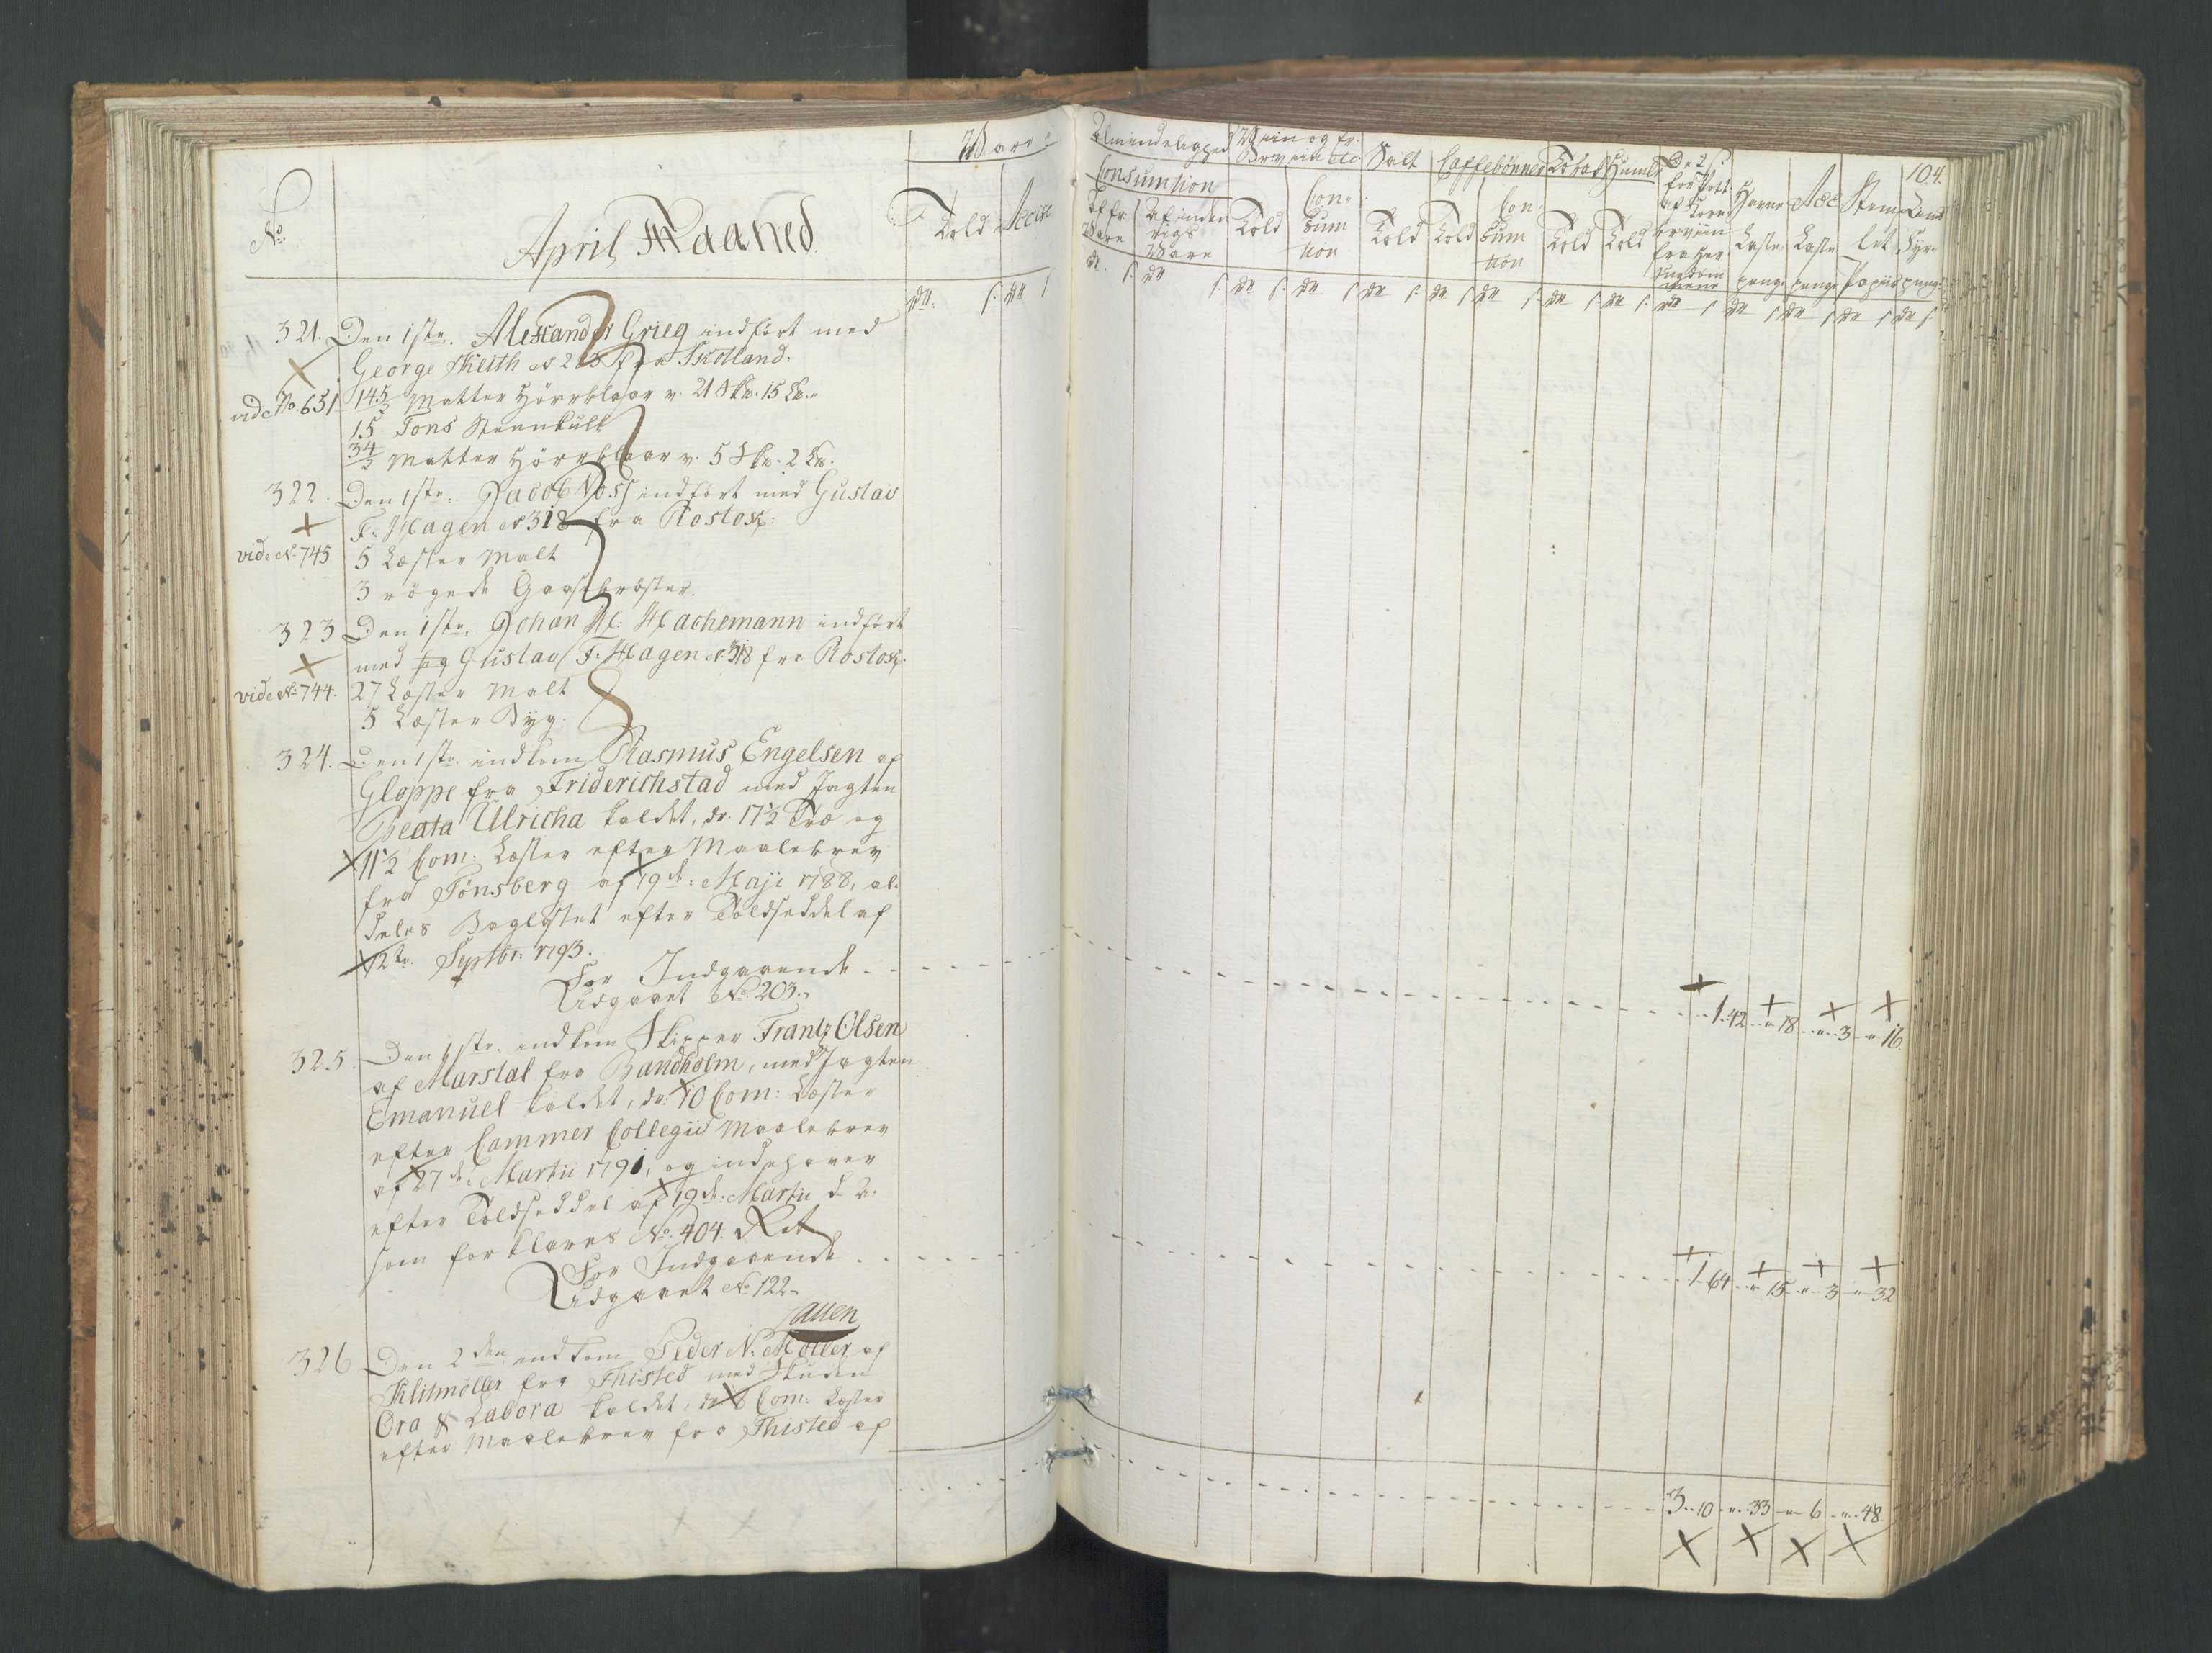 No.
April Maaned
Ware
Told Accise
321. Den 1ste. Alexander Grieg indført med
George Keith No 283 fra Skotland.
vide No. 651 145/2 Matter Hørreklaar v. 21 Sk℔. 15 L℔.
15 Tons Steenkull
34/2 Matter Hørreklaar v. 5 Sk℔. 2 L℔.
322. Den 1ste. Jacob Voss indført med Gustav
F: Hagen No 318 fra Rostok:
vide No. 745 5 Læster Malt
3 røgede Gaasebrøster.
323 Den 1ste. Johan H: Hachemann indført
med Gustav F. Hagen No. 318 fra Rostok.
vide No. 744. 27 Læster Malt
5 Læster Byg.
324. Den 1ste. indkom Rasmus Engelsen af
Gloppe fra Friderichstad med Jagten
Beata Ulricha kaldet, dr. 17½ Træ og
11½ Com: Læster efter Maalebrev
fra Tønsberg af 19de: Maji 1788, al-
deles Baglastet efter Toldseddel af
12te. Septbr: 1793.
For Indgaaende
Udgaaet No. 203.
1. 42 " 18 " 3 " 16.
325. Den 1ste. indkom Skipper Frantz Olsen
af Marstal fra Bandholm, med Jagten
Emanuel kaldet, dr. 10 Com: Læster
efter Cammer Collegii Maalebrev
af 27de: Martii 1791, og indehaver
efter Toldseddel af 19de: Martii d. A.
som forklares No. 404. Ret
For Indgaaende
Udgaaet No. 122.
1. 64 " 15 " 3 " 32
326 Den 2den indkom Peder N: Møller af
Klitmøller fra Thisted med Skuden
Ora & Labora kaldet, dr 8 Com: Læster
efter Maalebrev fra Thisted af
104.
Almindelig Viin og fr. Brændeviin Salt Caffebønner Tobak Humle
Consumtion
Af fr. Vare Af inden rigs Vare Told Con- sum tion Told Told Con- sum tion Told Told
Havne Læste penge Acc Læste penge Stemp- let Papiir
3. 10 " 33 " 6 " 48